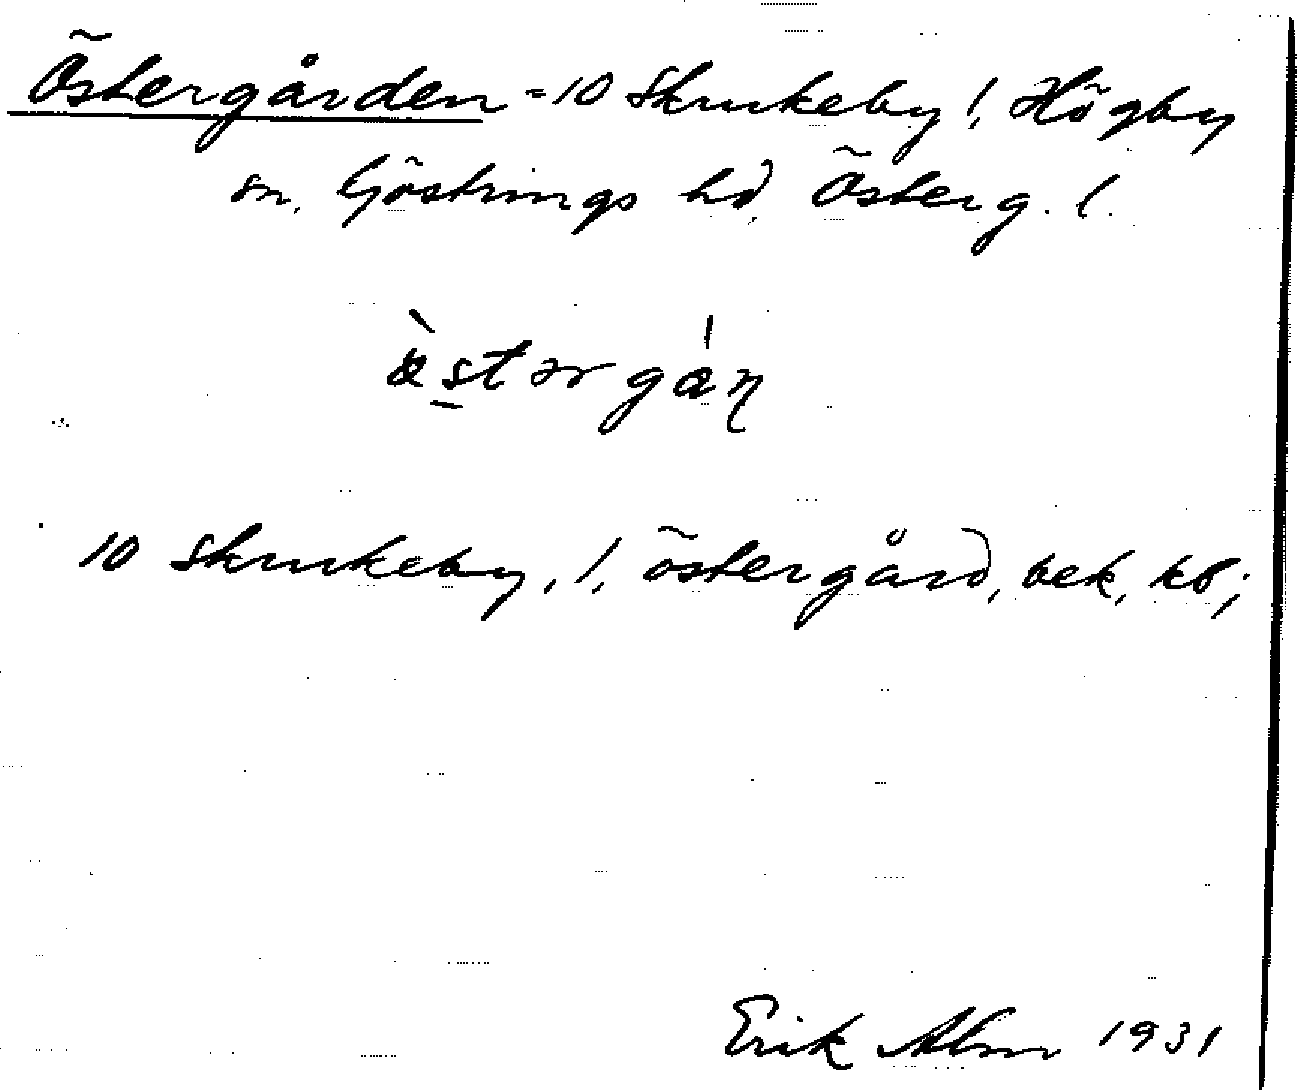 Östergården = 10 Skrukeby 1, Högby
sn. Göstrings hd. Österg. l.
östərgán
10 Skrukeby, 1, östergård, bek, kb;
Erik Alm 1931